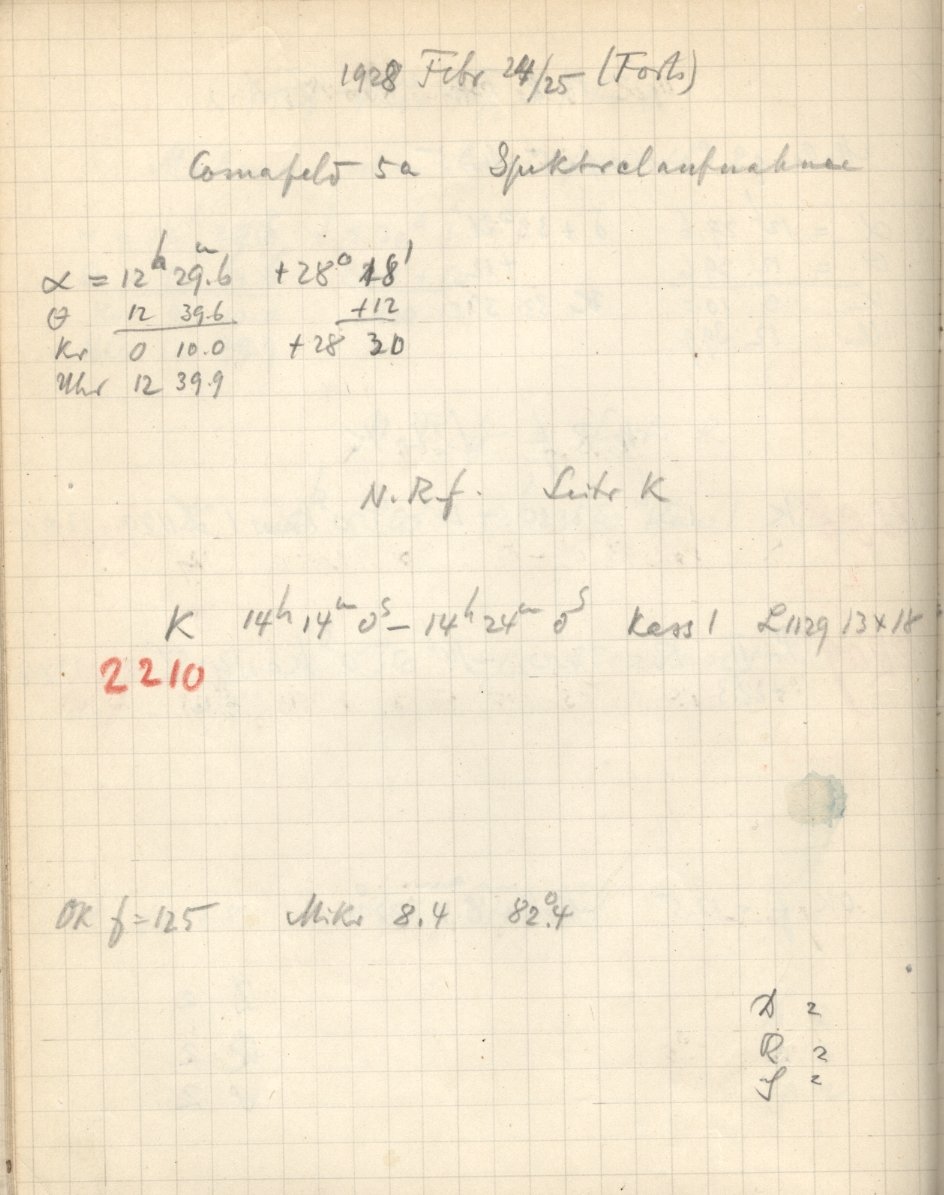 1928 Febr 24/25 (Forts)
Comafeld 5a Spektralaufnahme
α = 12ʰ 29ᵐ.6 +28° 18'
θ 12 39.6 +12
Kr 0 10.0 +28 30
Uhr 12 39.9
N. Rf. Seite K
K 14ʰ 14ᵐ 0ˢ – 14ʰ 24ᵐ 0ˢ Kass 1 L1129 13×18
2210
OK f=125 Mikr 8.4 82°.4
D 2
R 2
S 2